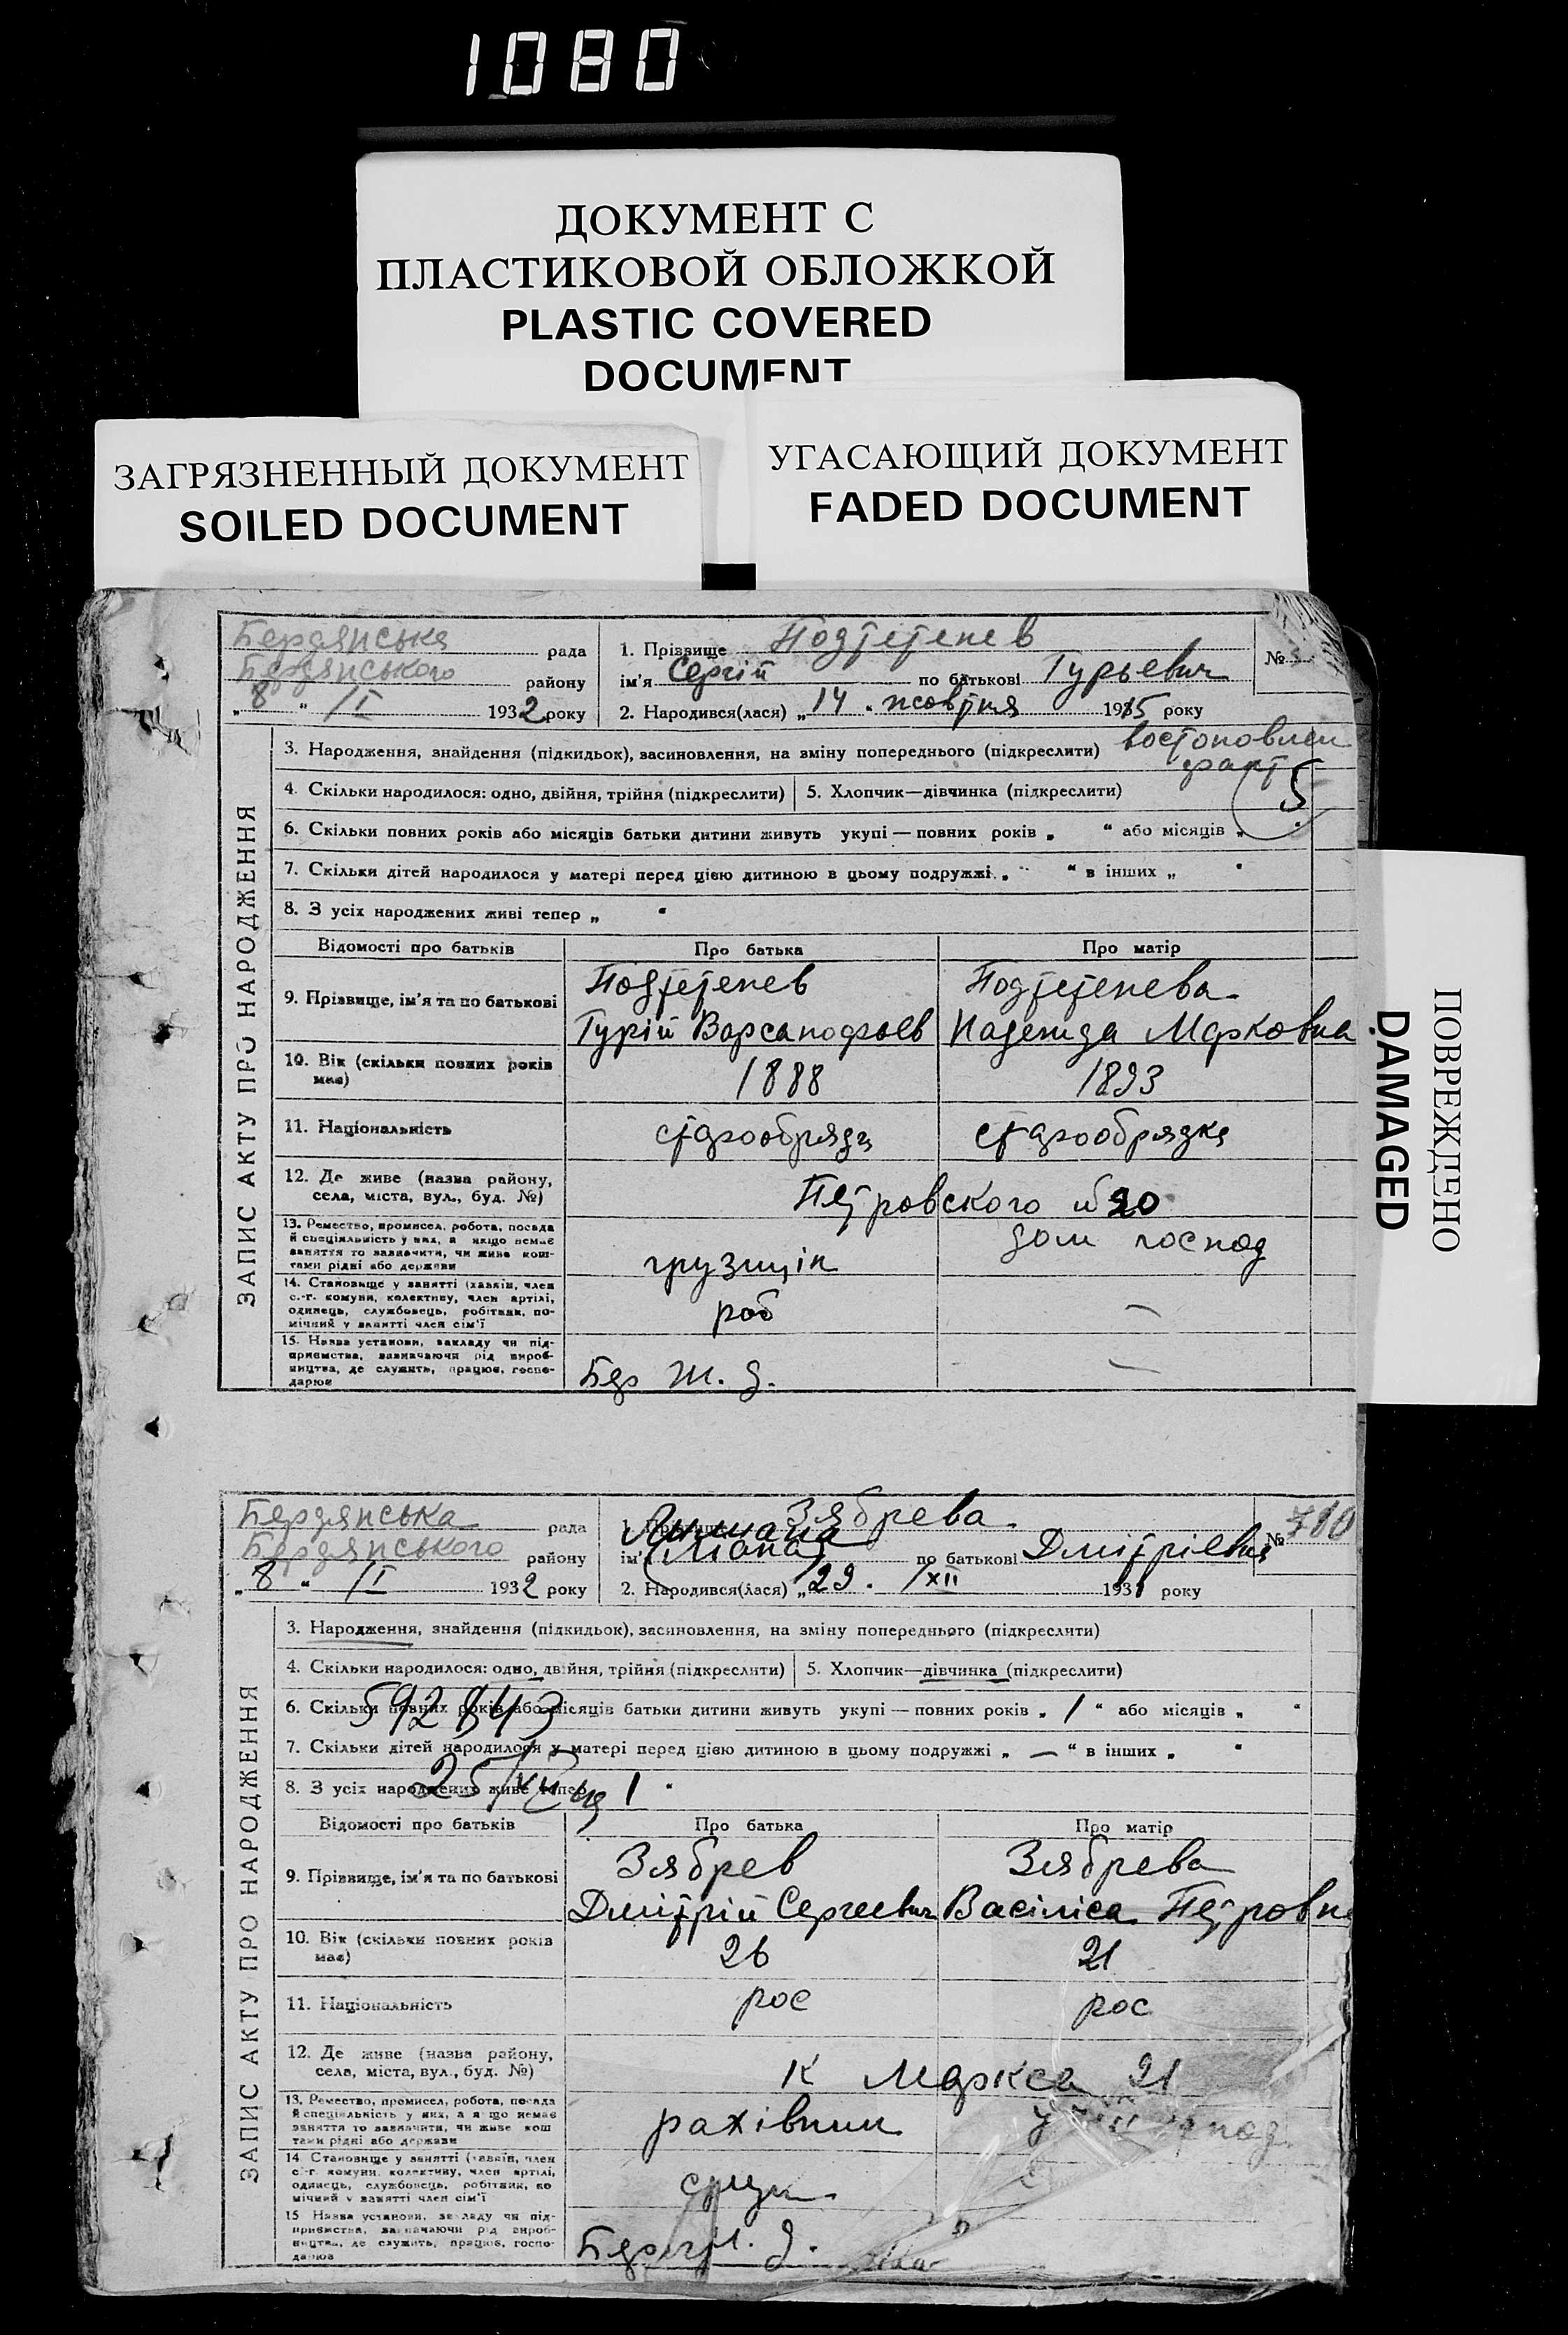 1080
ДОКУМЕНТ С
ПЛАСТИКОВОЙ ОБЛОЖКОЙ
PLASTIC COVERED
DOCUMENT
ЗАГРЯЗНЕННЫЙ ДОКУМЕНТ
SOILED DOCUMENT
УГАСАЮЩИЙ ДОКУМЕНТ
FADED DOCUMENT
ПОВРЕЖДЕНО
DAMAGED
ЗАПИС АКТУ ПРО НАРОДЖЕННЯ
Бердянська рада
Бердянського району
„8“ /I 1932 року
1. Прізвище Подтетенев
ім'я Сергій по батькові Гурьевич
2. Народився(лася) „14“ жовтня 1915 року
№
3. Народження, знайдення (підкидьок), засиновлення, на зміну попереднього (підкреслити)
4. Скільки народилося: одно, двійня, трійня (підкреслити) 5. Хлопчик—дівчинка (підкреслити)
5
6. Скільки повних років або місяців батьки дитини живуть укупі — повних років „ “ або місяців „
7. Скільки дітей народилося у матері перед цією дитиною в цьому подружжі „ “ в інших „ “
8. З усіх народжених живі тепер „ “
Відомості про батьків Про батька Про матір
9. Прізвище, ім'я та по батькові
Подтетенев Подтетенева
Гурій Надежда Марковна
10. Вік (скільки повних років має) 1888 1893
11. Національність старообрядц старообрядка
12. Де живе (назва району, села, міста, вул., буд. №)
Петровского 20
13. Ремество, промисел, робота, посада й спеціяльність у них, а якщо немає заняття то зазначити, чи живе коштами рідні або держави
грузщік дом господ
14. Становище у занятті (хазяїн, член с.-г. комуни, колективу, член артілі, одинець, службовець, робітник, помічний у занятті член сім'ї
роб —
15. Назва установи, закладу чи підприємства, зазначаючи рід виробництва, де служить, працює, господарює
Бер ж. д. —
ЗАПИС АКТУ ПРО НАРОДЖЕННЯ
Бердянська рада
Бердянського району
„8“ /I 1932 року
1. Прізвище Зябрева
ім'я по батькові
2. Народився(лася) „29“ /XII 1931 року
№
3. Народження, знайдення (підкидьок), засиновлення, на зміну попереднього (підкреслити)
4. Скільки народилося: одно, двійня, трійня (підкреслити) 5. Хлопчик—дівчинка (підкреслити)
6. Скільки повних років або місяців батьки дитини живуть укупі — повних років „ 1 “ або місяців „ “
7. Скільки дітей народилося у матері перед цією дитиною в цьому подружжі „ — “ в інших „ “
8. З усіх народжених живі тепер „ 1 “
Відомості про батьків Про батька Про матір
9. Прізвище, ім'я та по батькові
Зябрев Зябрева
Дмітрій Сергеевич Васіліса Петровн
10. Вік (скільки повних років має) 26 21
11. Національність рос рос
12. Де живе (назва району, села, міста, вул., буд. №)
К Маркса 21
13. Ремество, промисел, робота, посада й спеціяльність у них, а якщо немає заняття то зазначити, чи живе коштами рідні або держави
рахівник
14. Становище у занятті (хазяїн, член с.-г. комуни, колективу, член артілі, одинець, службовець, робітник, помічний у занятті член сім'ї
15. Назва установи, закладу чи підприємства, зазначаючи рід виробництва, де служить, працює, господарює